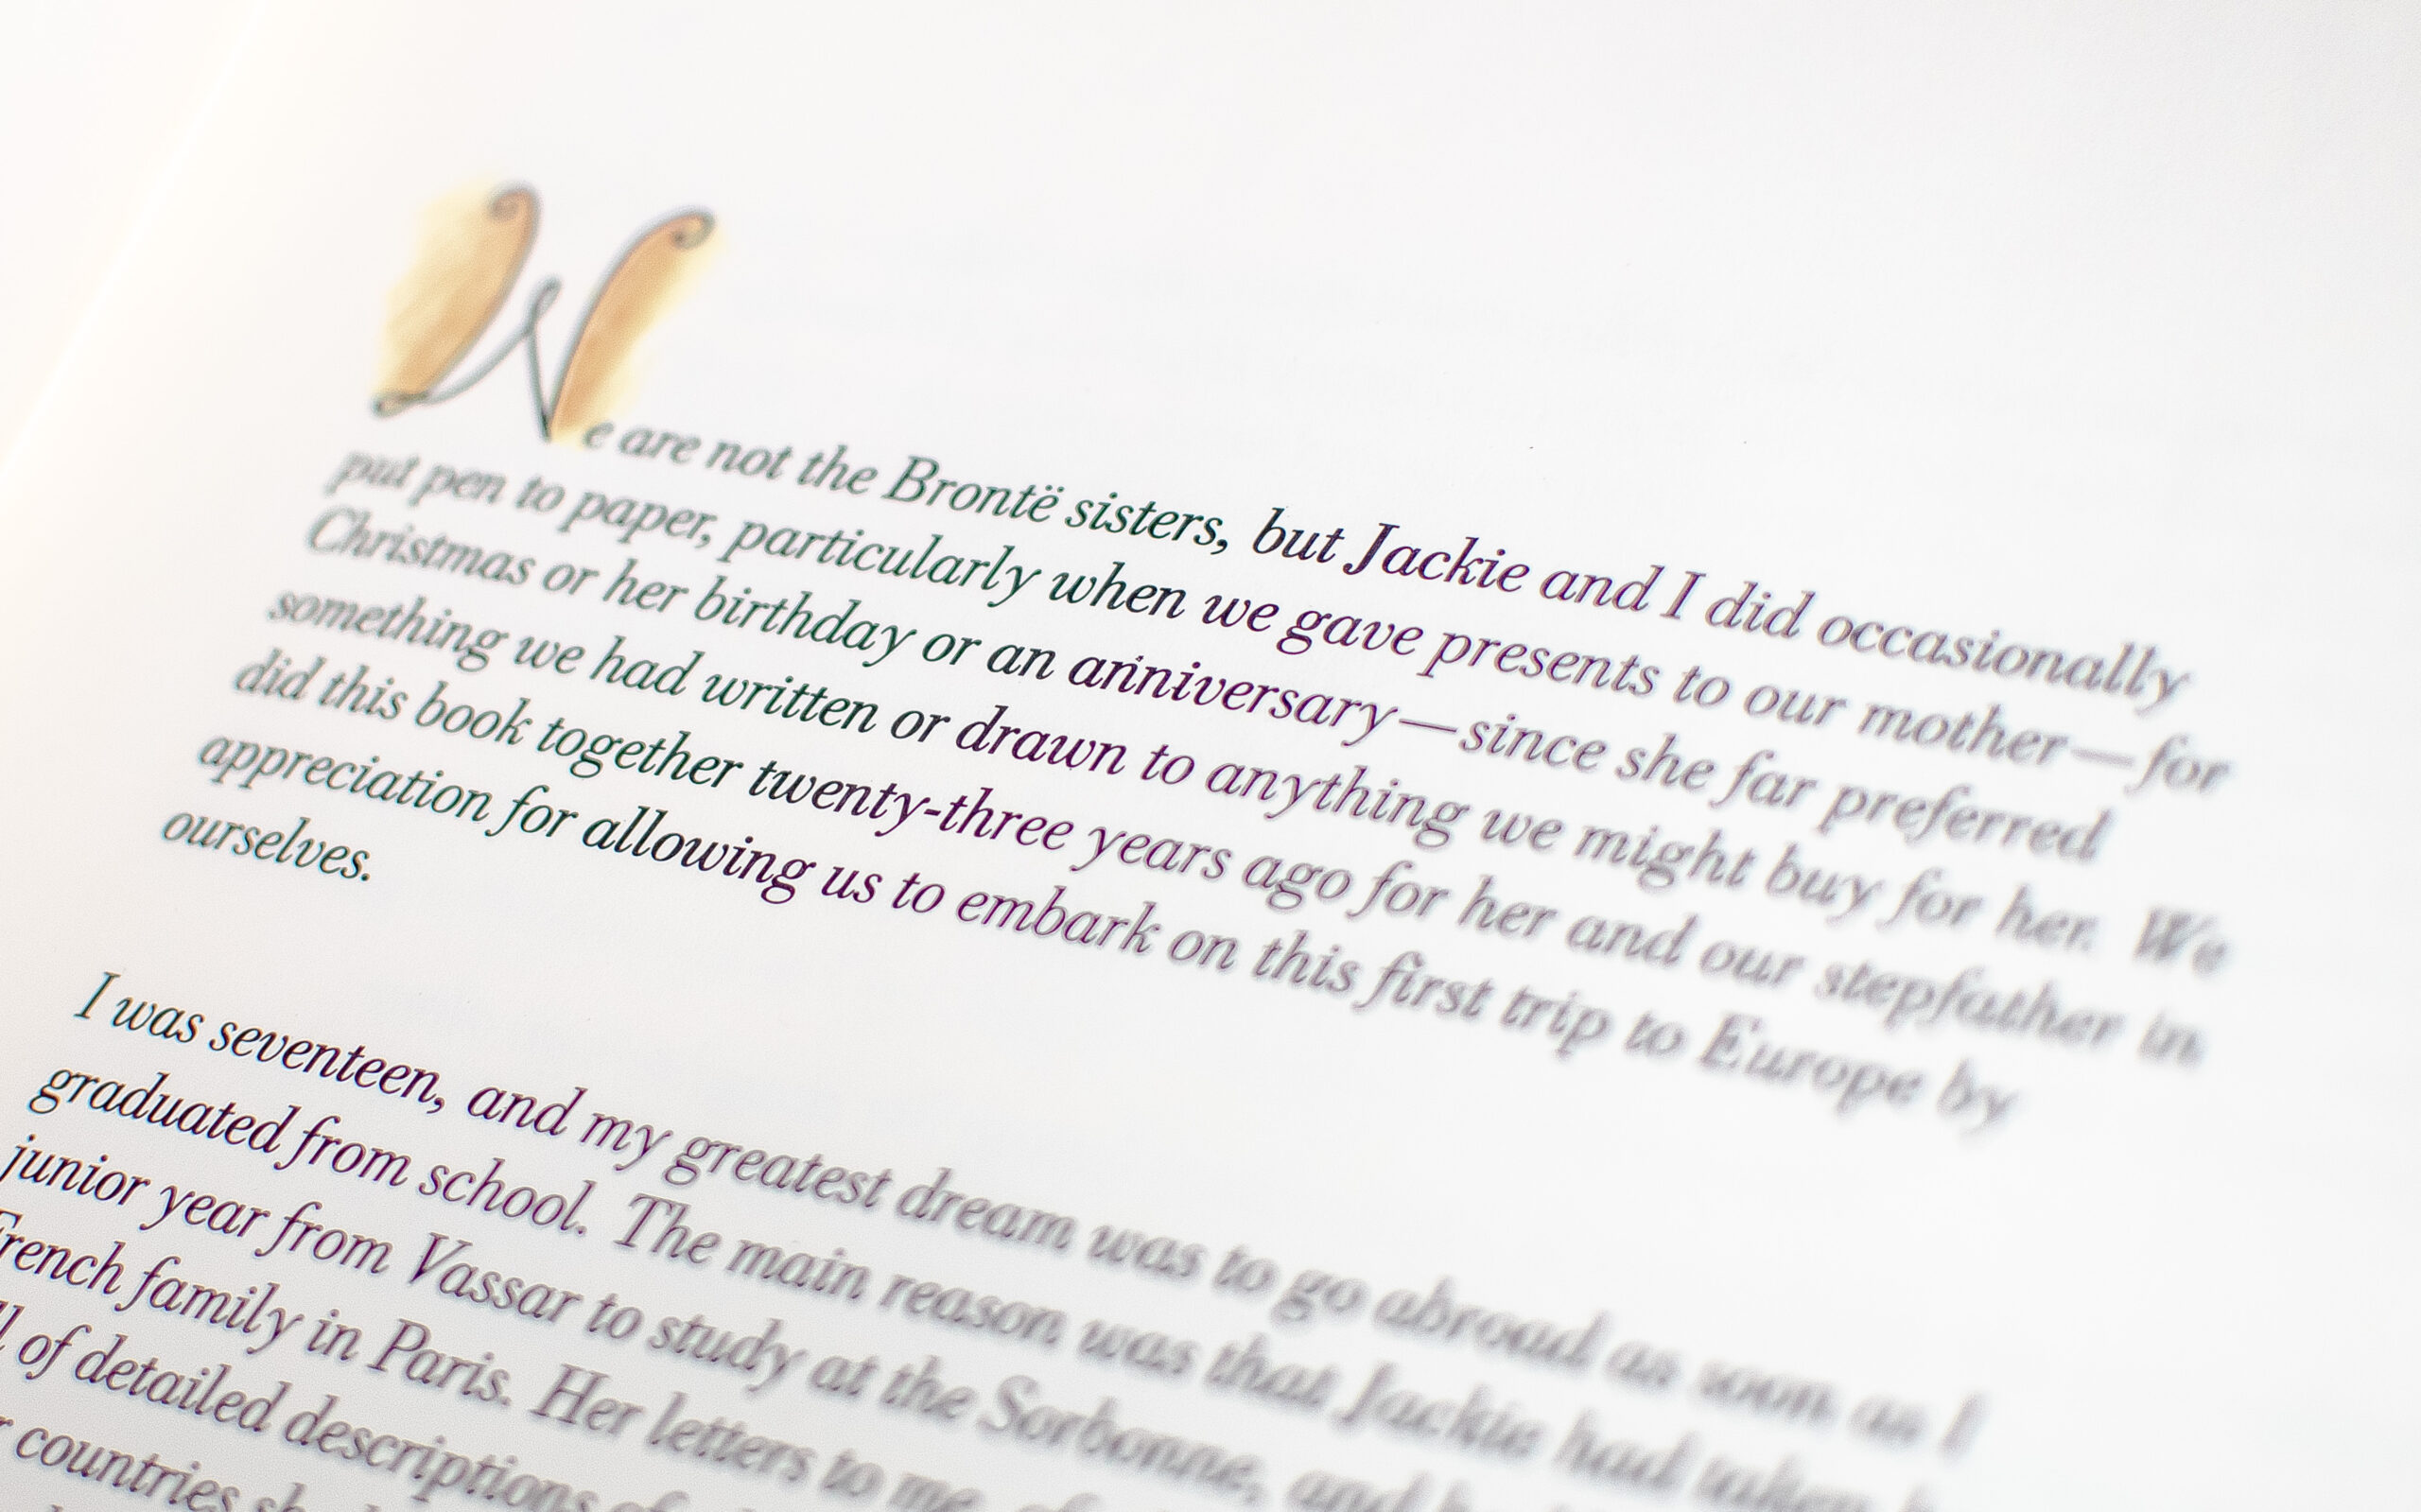 We are not the Brontë sisters, but Jackie and I did occasionally
put pen to paper, particularly when we gave presents to our mother—for
Christmas or her birthday or an anniversary—since she far preferred
something we had written or drawn to anything we might buy for her. We
did this book together twenty-three years ago for her and our stepfather in
appreciation for allowing us to embark on this first trip to Europe by
ourselves.
I was seventeen, and my greatest dream was to go abroad as soon as I
graduated from school. The main reason was that Jackie had taken
junior year from Vassar to study at the Sorbonne, and
French family in Paris. Her letters to me
of detailed descriptions of
countries